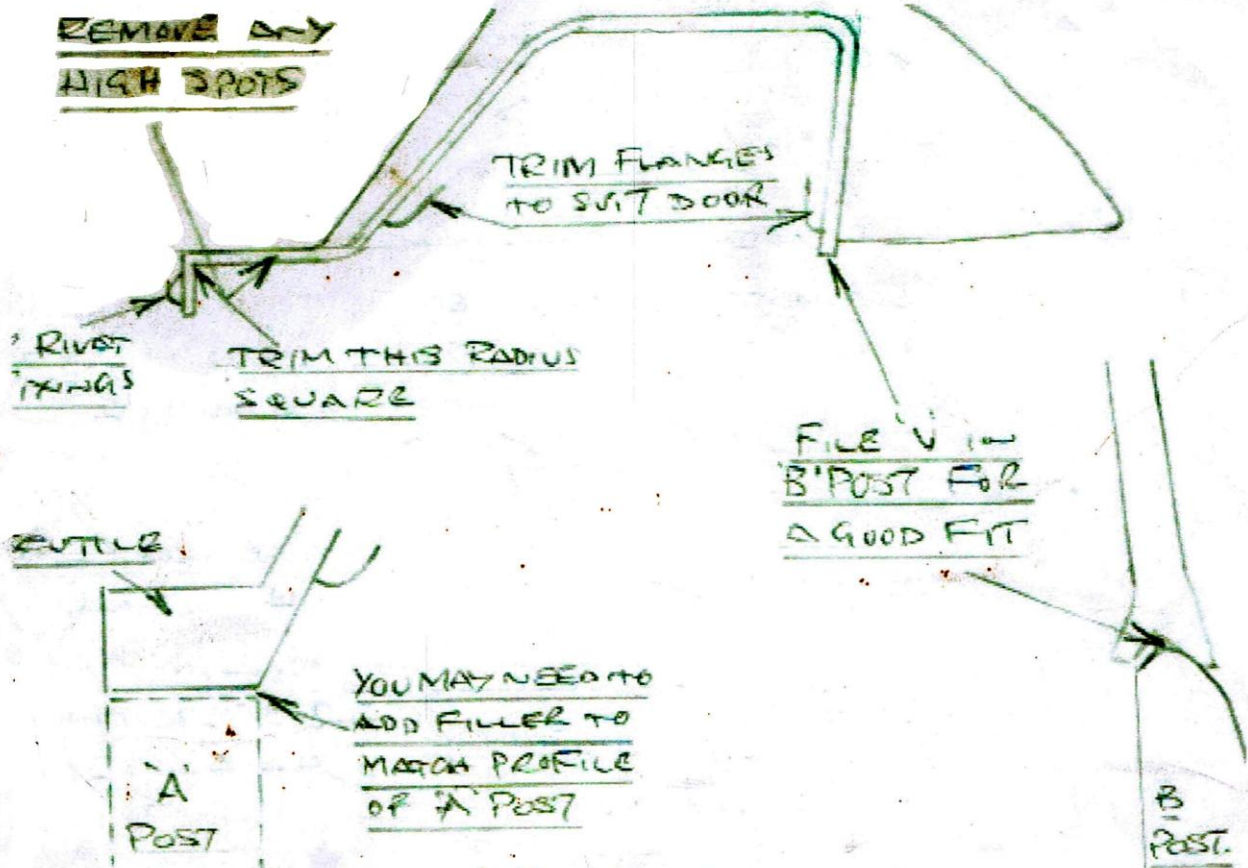 REMOVE ANY
HIGH SPOTS
TRIM FLANGES
TO SUIT DOOR
RIVET
TRIM THIS RADIUS
SQUARE
FILE 'V' IN
'B' POST FOR
A GOOD FIT
YOU MAY NEED TO
ADD FILLER TO
MATCH PROFILE
OF 'A' POST
'A'
POST
B
POST.